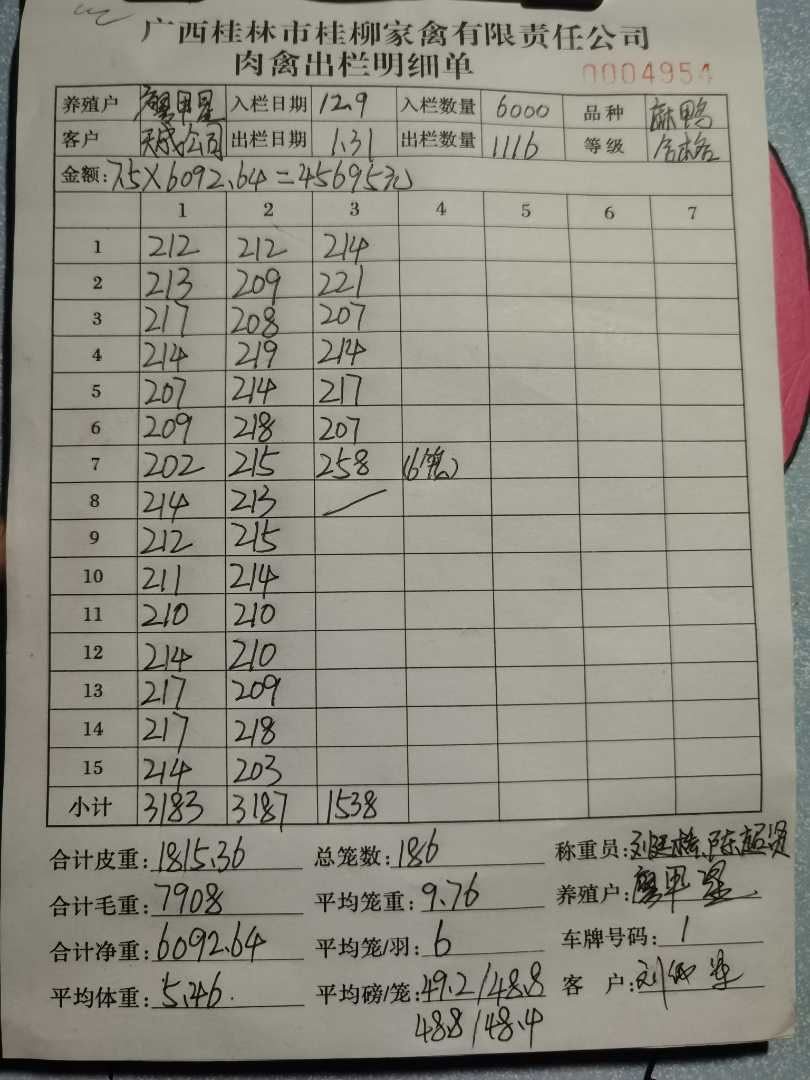 广西桂林市桂柳家禽有限责任公司
肉禽出栏明细单
0004954
养殖户 入栏日期 12.9 入栏数量 6000 品种 麻鸭
客户 天成公司 出栏日期 1.31 出栏数量 1116 等级 合格
金额: 7.5×6092.64=45695元
1 2 3 4 5 6 7
1 212 212 214
2 213 209 221
3 217 208 207
4 214 219 214
5 207 214 217
6 209 218 207
7 202 215 258 (6笼)
8 214 213
9 212 215
10 211 214
11 210 210
12 214 210
13 217 209
14 217 218
15 214 203
小计 3183 3187 1538
合计皮重: 1815.36 总笼数: 186 称重员:
合计毛重: 7908 平均笼重: 9.76 养殖户:
合计净重: 6092.64 平均笼/羽: 6 车牌号码: 1
平均体重: 5.46 平均磅/笼: 49.2/48.8 客 户:
48.8/48.4